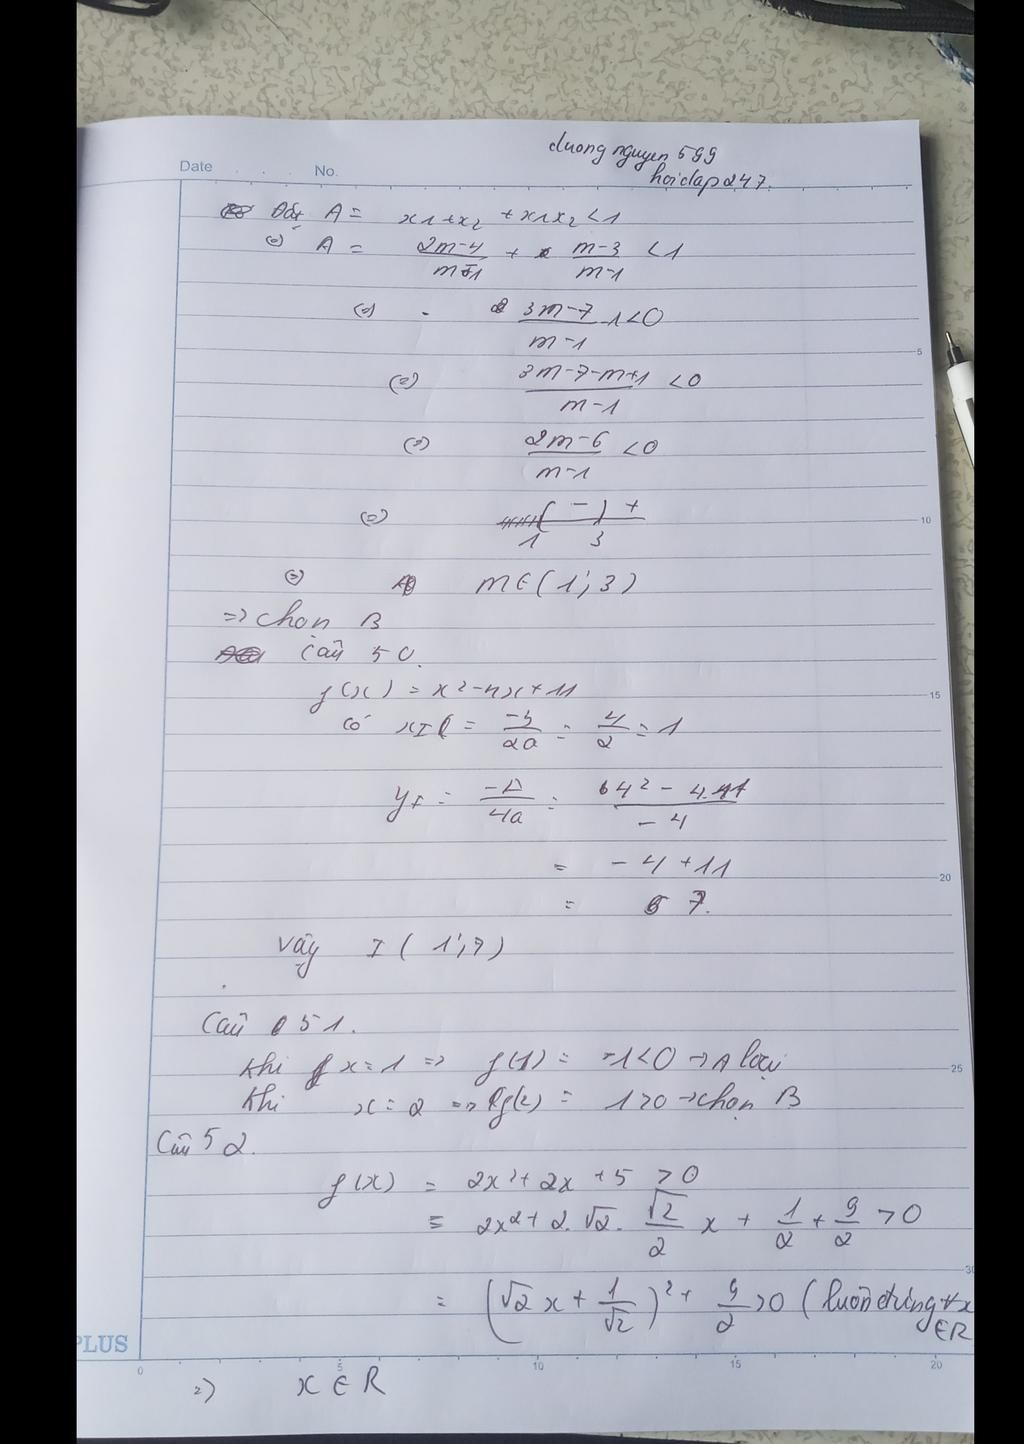 duong nguyen 599
hoidap247.
Date . . . No.
Đặt A = x1+x2 + x1x2 < 1
(=) A = \frac{2m-4}{m-1} + \frac{m-3}{m-1} < 1
(=) \frac{3m-7}{m-1} - 1 < 0
(=) \frac{3m-7-m+1}{m-1} < 0
(=) \frac{2m-6}{m-1} < 0
(=) ( - ) +
1 3
(=) m ∈ (1; 3)
=> chọn B
Câu 50.
f(x) = x² - 4x + 11
có xI = \frac{-b}{2a} = \frac{4}{2} = 1
yI = \frac{-Δ}{4a} = \frac{4² - 4.11}{-4}
= -4 + 11
= 7.
Vậy I (1; 7)
Câu 51.
Khi x = 1 => f(1) = -1 < 0 → A loại
Khi x = 2 => f(2) = 1 > 0 → chọn B
Câu 52.
f(x) = 2x² + 2x + 5 > 0
= 2x² + 2. √2. \frac{√2}{2} x + \frac{1}{2} + \frac{9}{2} > 0
= (√2 x + \frac{1}{√2})² + \frac{9}{2} > 0 (luôn đúng ∀x
∈ R
=) x ∈ R
PLUS
0 5 10 15 20
5
10
15
20
25
30